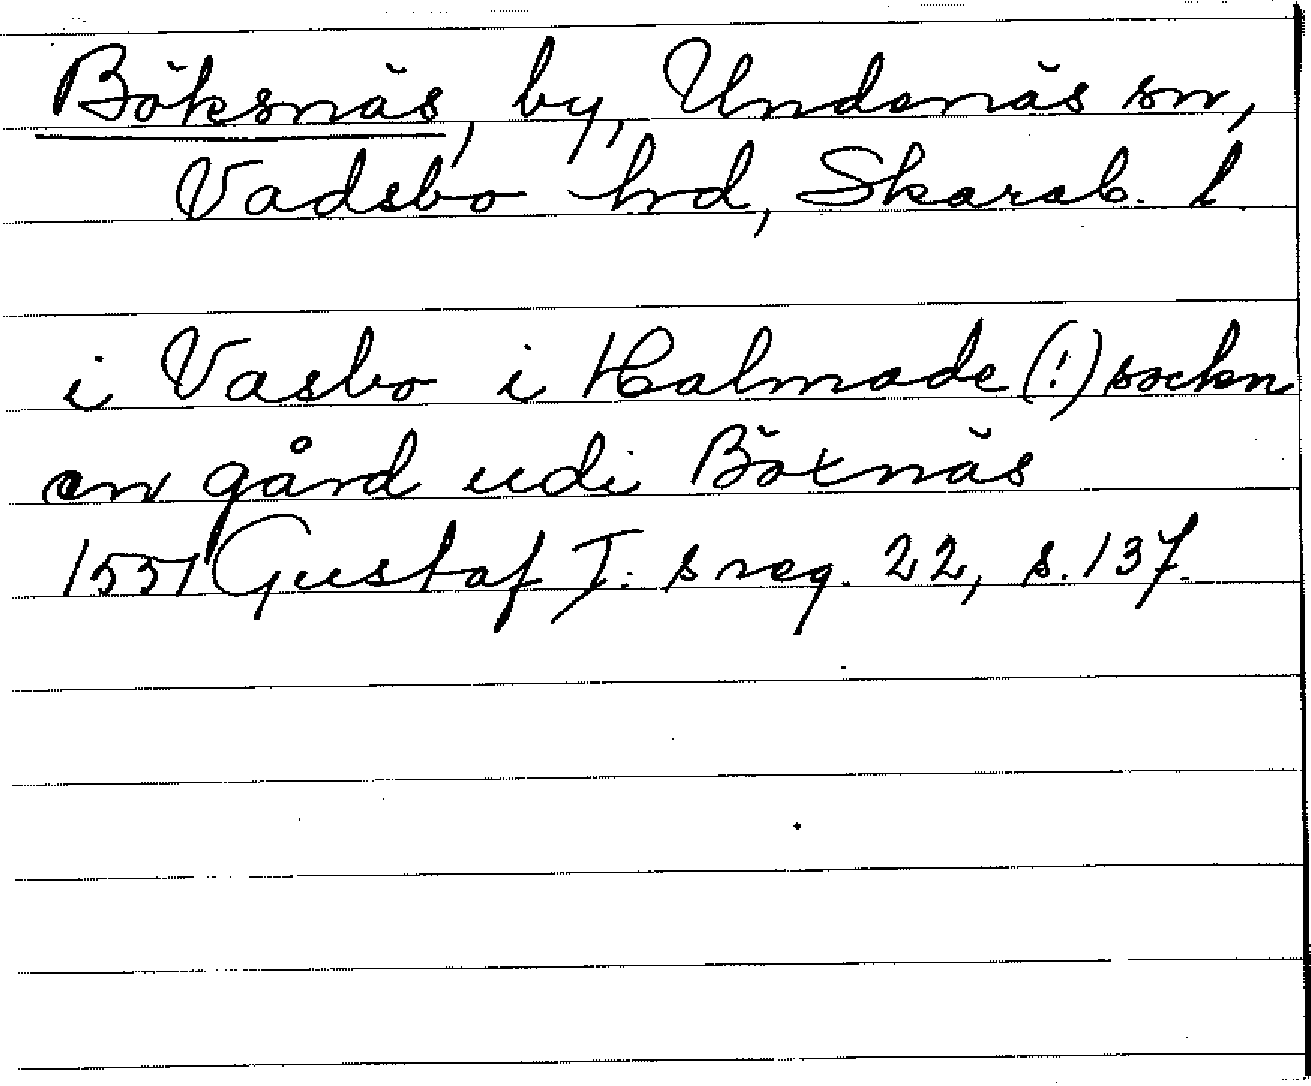 Böksnäs, by, Undenäs sn,
Vadsbo hrd, Skarab. l.
i Vasbo i Halmade (!) sockn
en gård udi Böxnäs
1551 Gustaf I:s reg. 22, s. 137.